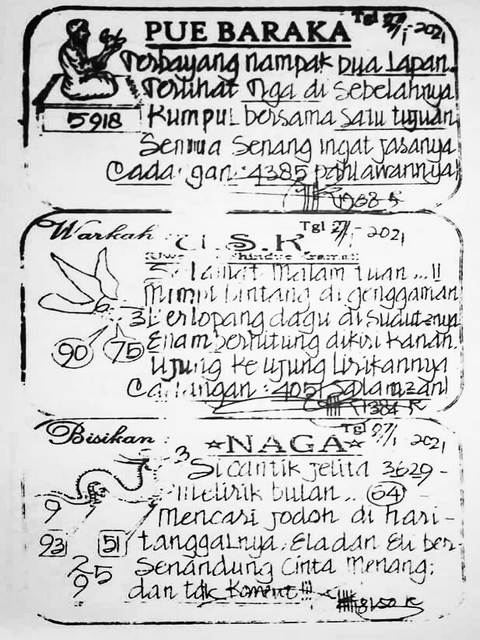 PUE BARAKA
Tgl 27/1-2021
Terbayang nampak Dua Lapan
Terlihat Nga di Sebelahnya
5918
Kumpul bersama satu tujuan
Semua Senang ingat jasanya
Cadangan: 4385 pahlawannya
Warkah
U.S.K.
Tgl 27/1-2021
Selamat malam tuan...!!
Mimpi bintang di genggaman
3
Berlopang dagu di Sudutnya
90 75
Enam berhitung dikiri Kanan
Ujung Ke ujung lirikannya
Cadangan: 4051
Bisikan
NAGA
Tgl 27/1 2021
3
Si cantik jelita 3629-
melirik bulan.. 64
9
Mencari Jodoh di hari-
93 51
tanggalnya, Ela dan Eli ber-
25
Senandung Cinta Menang;
9
dan tak Koment!!!